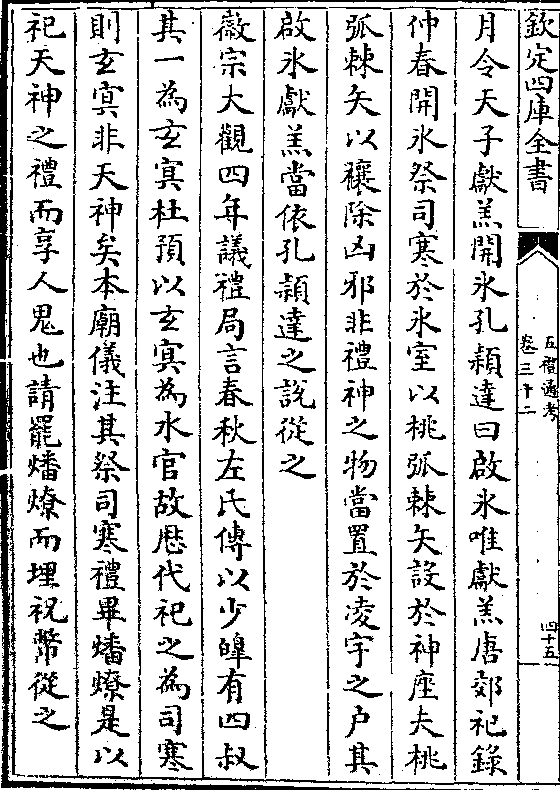 欽定四庫全書
五禮通考
卷三十二
四十五
月令天子獻羔開氷孔穎達曰啟氷唯獻羔唐郊祀錄
仲春開氷祭司寒於氷室以桃弧棘矢設於神座夫桃
弧棘矢以禳除凶邪非禮神之物當置於凌宇之户其
啟氷獻羔當依孔穎達之說從之
徽宗大觀四年議禮局言春秋左氏傳以少皥有四叔
其一為玄冥杜預以玄冥為水官故歴代祀之為司寒
則玄冥非天神矣本廟儀注其祭司寒禮畢燔燎是以
祀天神之禮而享人鬼也請罷燔燎而埋祝幣從之